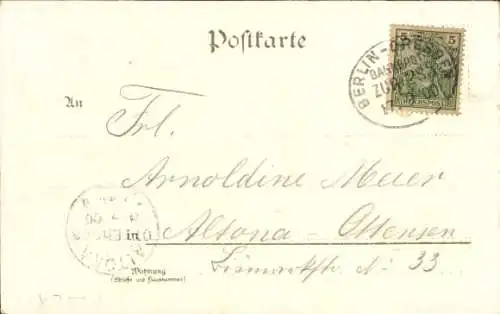 Postkarte
5 5
BERLIN-DRESDEN
BAHNPOST
ZUG
REICHSPOST
An
Frl.
Arnoldine Meier
in Altona-Ottensen
Bismarckstr. № 33
Wohnung
(Straße und Hausnummer)